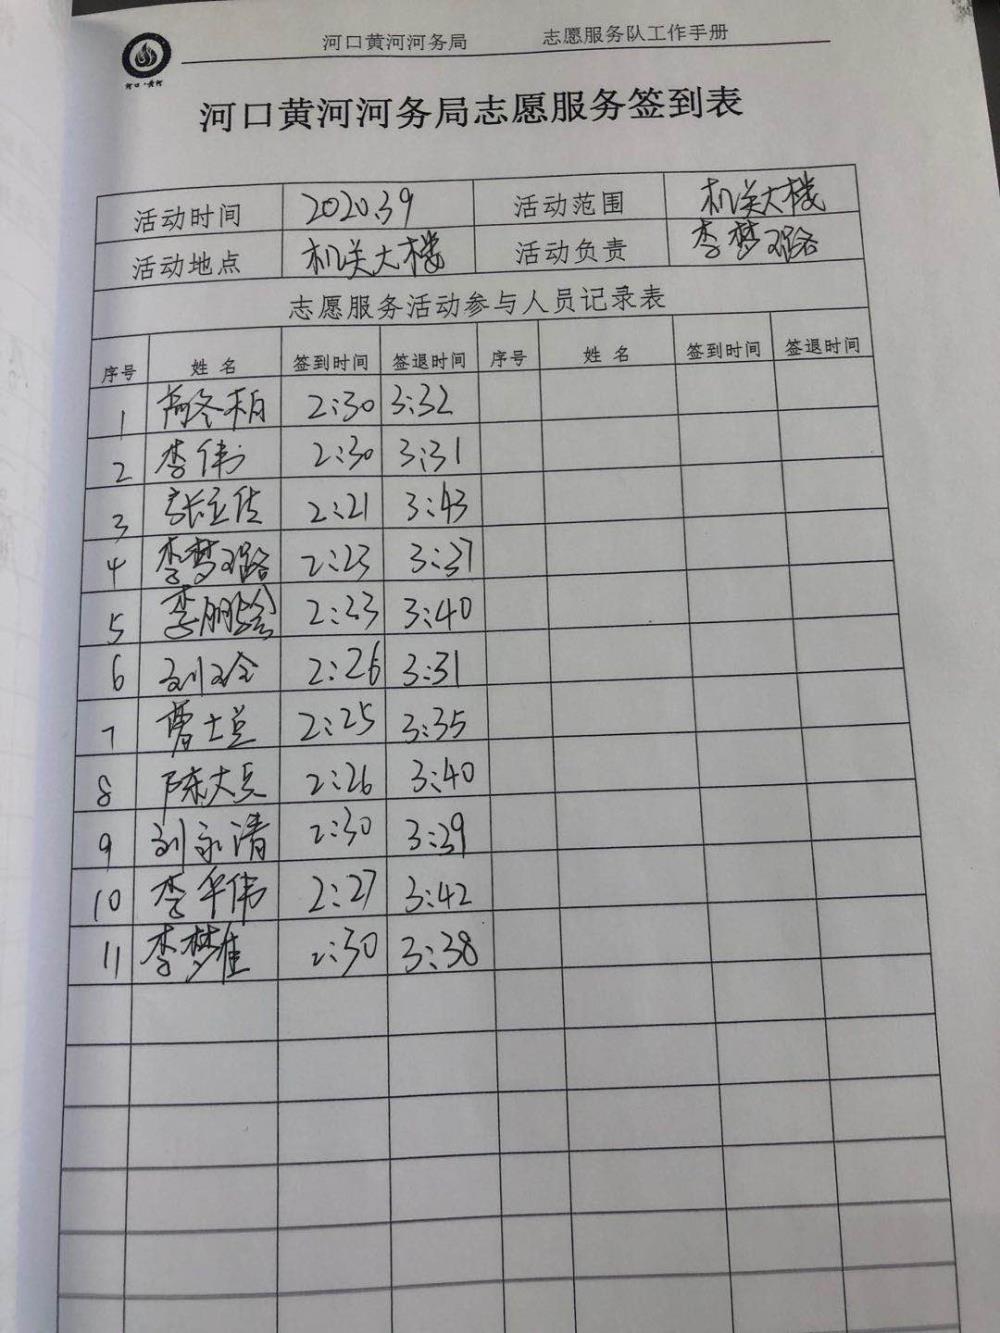 河口黄河河务局 志愿服务队工作手册
河口·黄河
河口黄河河务局志愿服务签到表
活动时间 2020.3.9 活动范围 机关大楼
活动地点 机关大楼 活动负责 李梦璐
志愿服务活动参与人员记录表
序号 姓名 签到时间 签退时间 序号 姓名 签到时间 签退时间
1 2:30 3:32
2 李伟 2:30 3:31
3 2:21 3:43
4 李梦璐 2:23 3:37
5 李鹏 2:23 3:40
6 刘玲 2:26 3:31
7 曹士 2:25 3:35
8 陈大兵 2:26 3:40
9 刘永清 2:30 3:39
10 李华伟 2:27 3:42
11 李梦佳 2:30 3:38